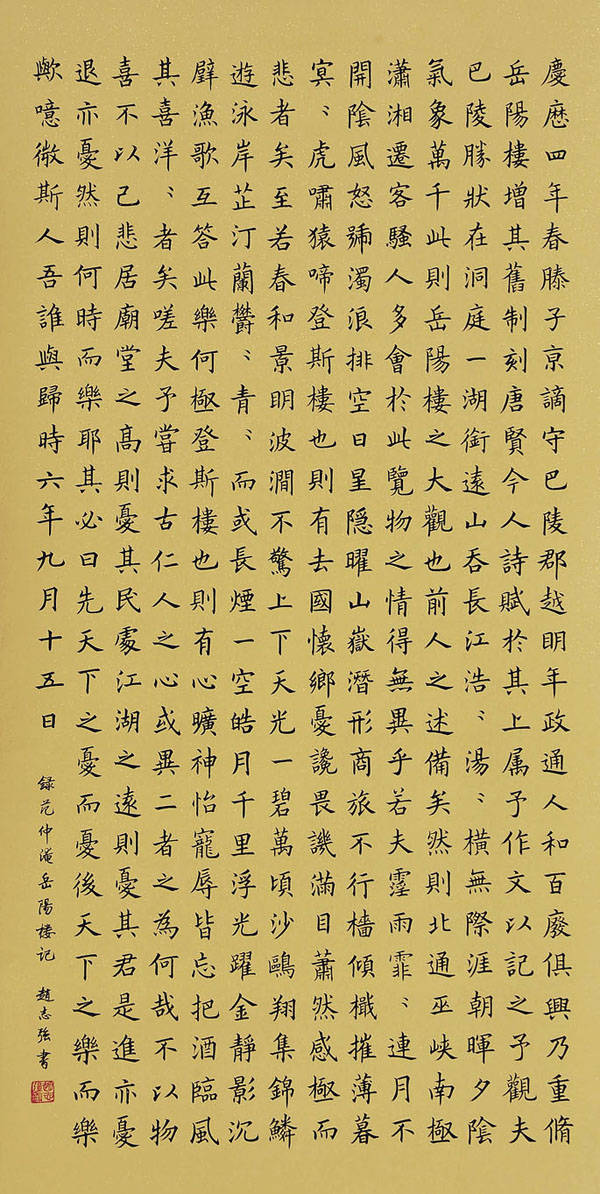 慶厯四年春滕子亰謫守巴陵郡越明年政通人和百廢俱興乃重脩
岳陽樓增其舊制刻唐賢今人詩賦於其上属予作文以記之予觀夫
巴陵勝狀在洞庭一湖銜遠山吞長江浩〻湯〻橫無際涯朝暉夕陰
氣象萬千此則岳陽樓之大觀也前人之述備矣然則北通巫峽南極
瀟湘遷客騷人多會於此覽物之情得無異乎若夫霪雨霏〻連月不
開陰風怒號濁浪排空日星隱曜山嶽潛形商旅不行檣傾檝摧薄暮
冥〻虎嘯猿啼登斯樓也則有去國懷鄉憂讒畏譏滿目蕭然感極而
悲者矣至若春和景明波瀾不驚上下天光一碧萬頃沙鷗翔集錦鱗
遊泳岸芷汀蘭鬱〻青〻而或長煙一空皓月千里浮光躍金靜影沉
璧漁歌互答此樂何極登斯樓也則有心曠神怡寵辱皆忘把酒臨風
其喜洋〻者矣嗟夫予嘗求古仁人之心或異二者之為何哉不以物
喜不以己悲居廟堂之高則憂其民處江湖之遠則憂其君是進亦憂
退亦憂然則何時而樂耶其必曰先天下之憂而憂後天下之樂而樂
歟噫微斯人吾誰與歸時六年九月十五日
録范仲淹岳陽樓记 趙志強書